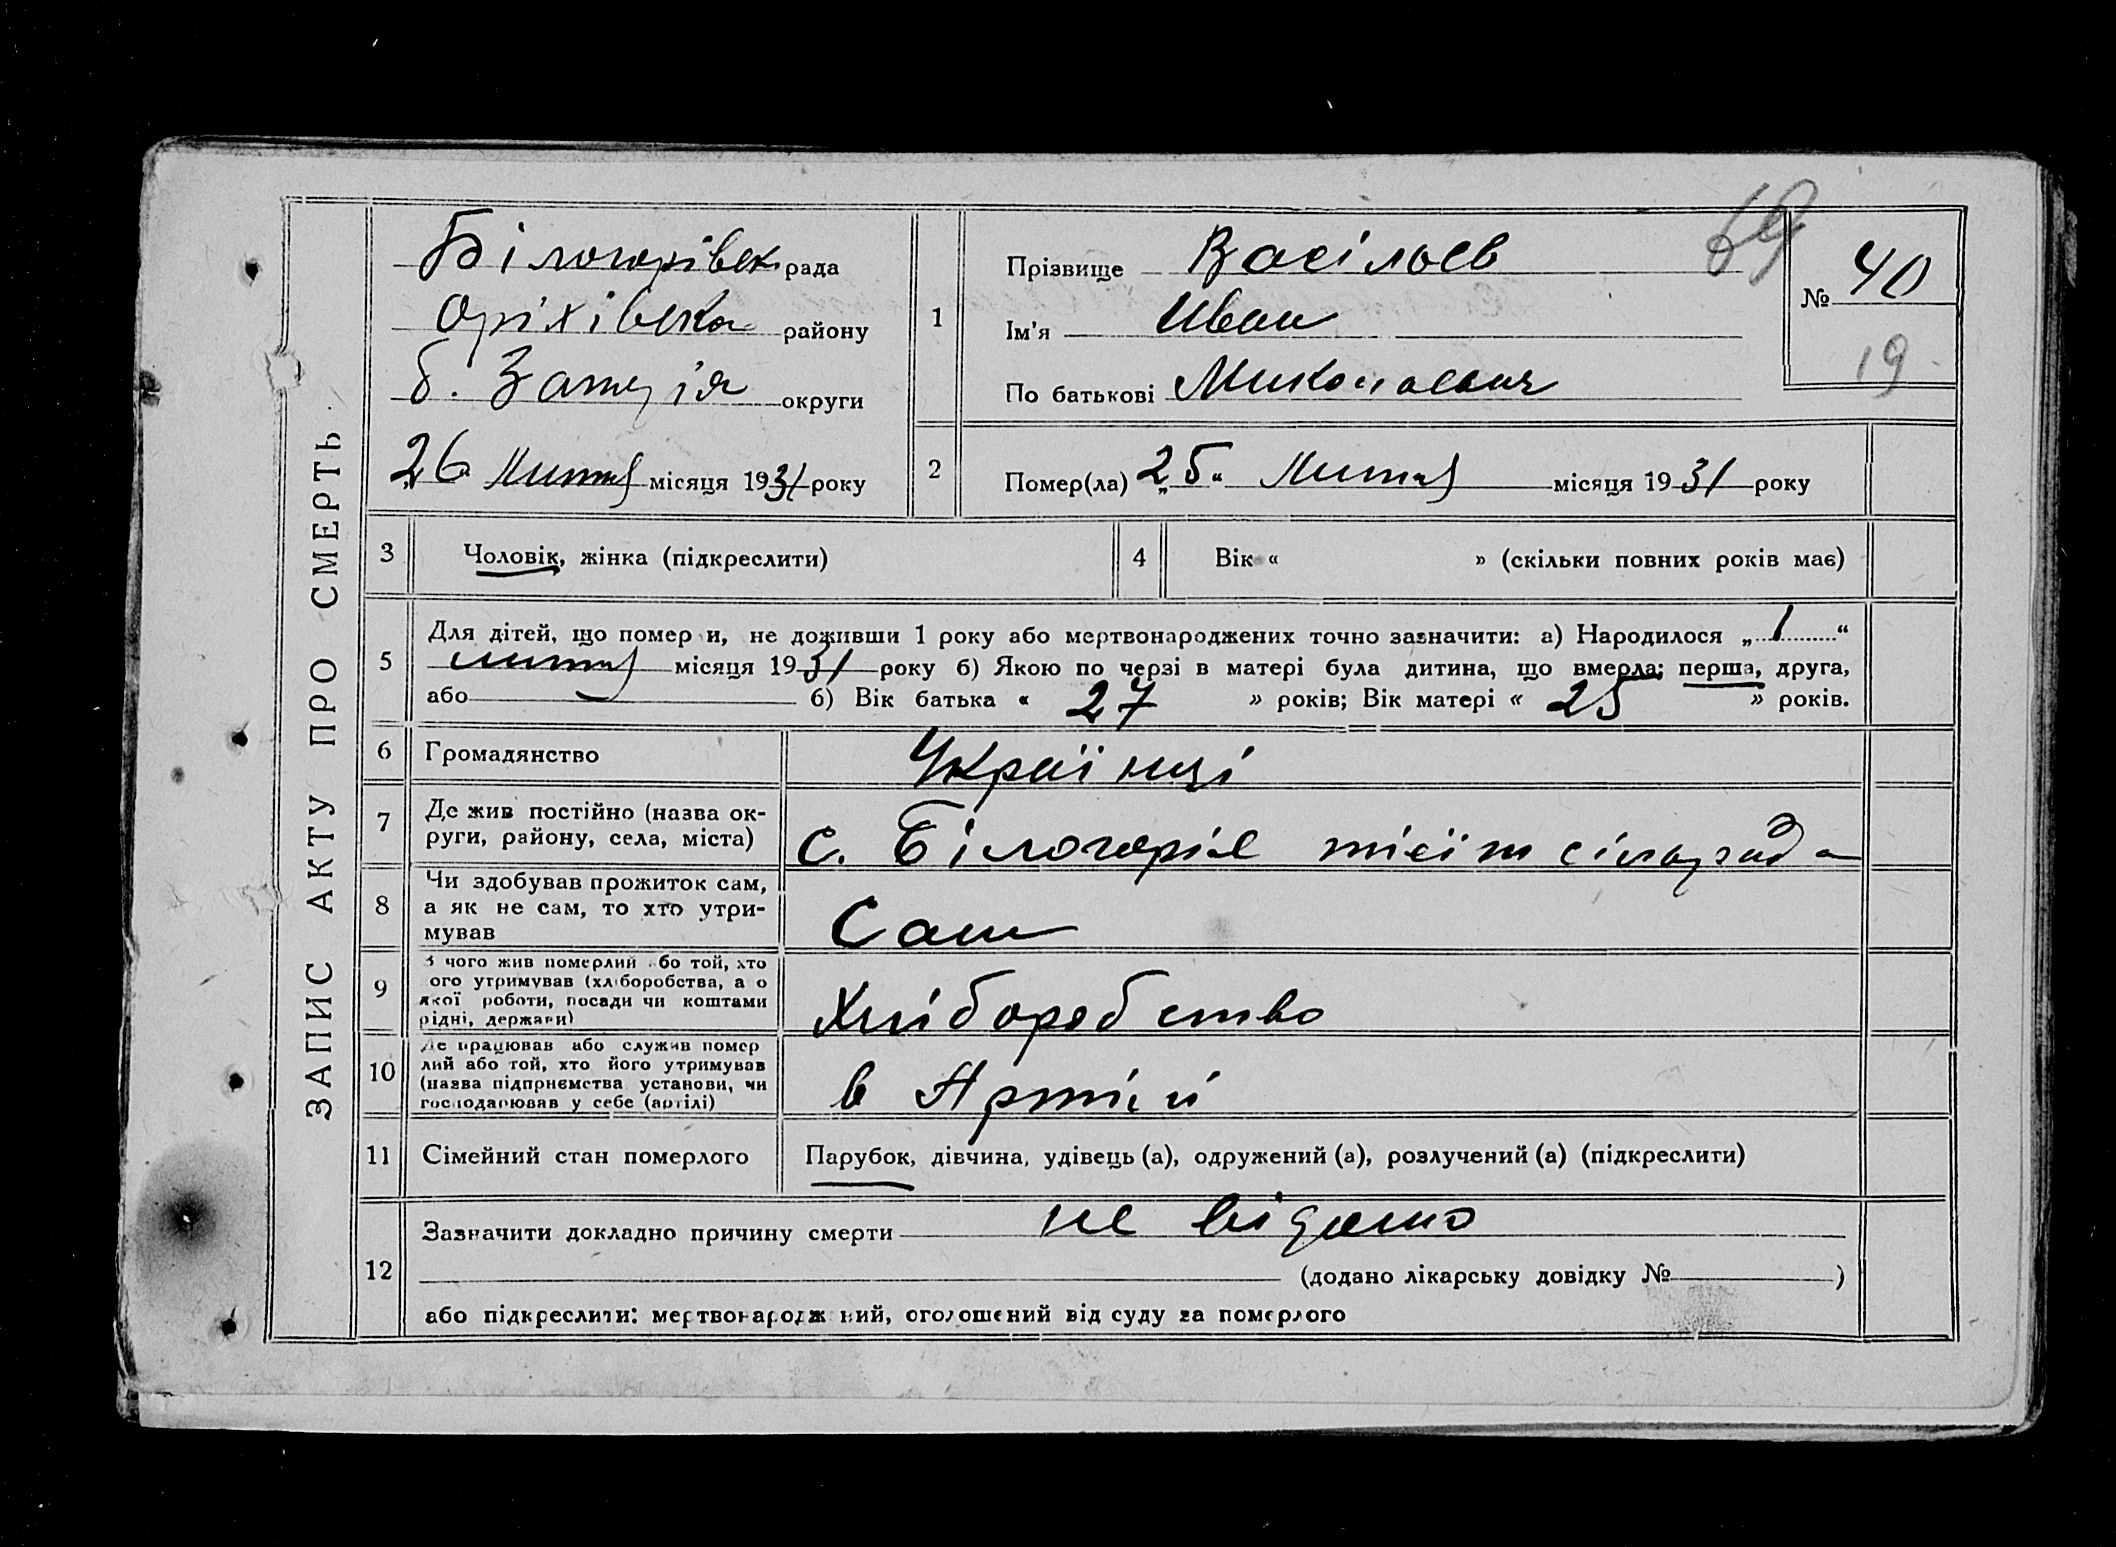 ЗАПИС АКТУ ПРО СМЕРТЬ
69
Білогорівск. рада
Оріхівска району
б. Запоріз округи
„26 Липня місяця 1931 року
1
Прізвище Васільєв
Ім'я Иван
По батькові Миколаєвич
№ 40
19
2
Помер(ла) „25“ Липня місяця 1931 року
3
Чоловік, жінка (підкреслити)
4
Вік « » (скільки повних років має)
5
Для дітей, що помер и, не доживши 1 року або мертвонароджених точно зазначити: а) Народилося „1“
липня місяця 1931 року б) Якою по черзі в матері була дитина, що вмерла; перша, друга,
або б) Вік батька « 27 » років; Вік матері « 25 » років.
6
Громадянство
Українці
7
Де жив постійно (назва ок-
руги, району, села, міста)
с. Білогоріє тієї ж сілради
8
Чи здобував прожиток сам,
а як не сам, то хто утри-
мував
Сам
9
З чого жив померлий або той, хто
ого утримував (хліборобства, а о
якої роботи, посади чи коштами
рідні, держави)
Хліборобство
10
Де працював або служив помер
лий або той, хто його утримував
(назва підприємства установи, чи
господарював у себе (артілі)
в Артілі
11
Сімейний стан померлого
Парубок, дівчина, удівець (а), одружений (а), розлучений (а) (підкреслити)
12
Зазначити докладно причину смерти не відомо
(додано лікарську довідку № )
або підкреслити: мертвонародж ний, оголошений від суду за померлого